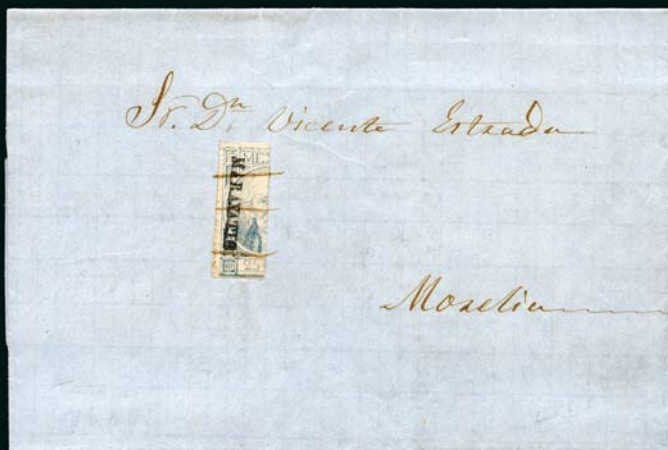 Sr. Dn. Vicente Estrada
ME
MARAVATIO
Morelia